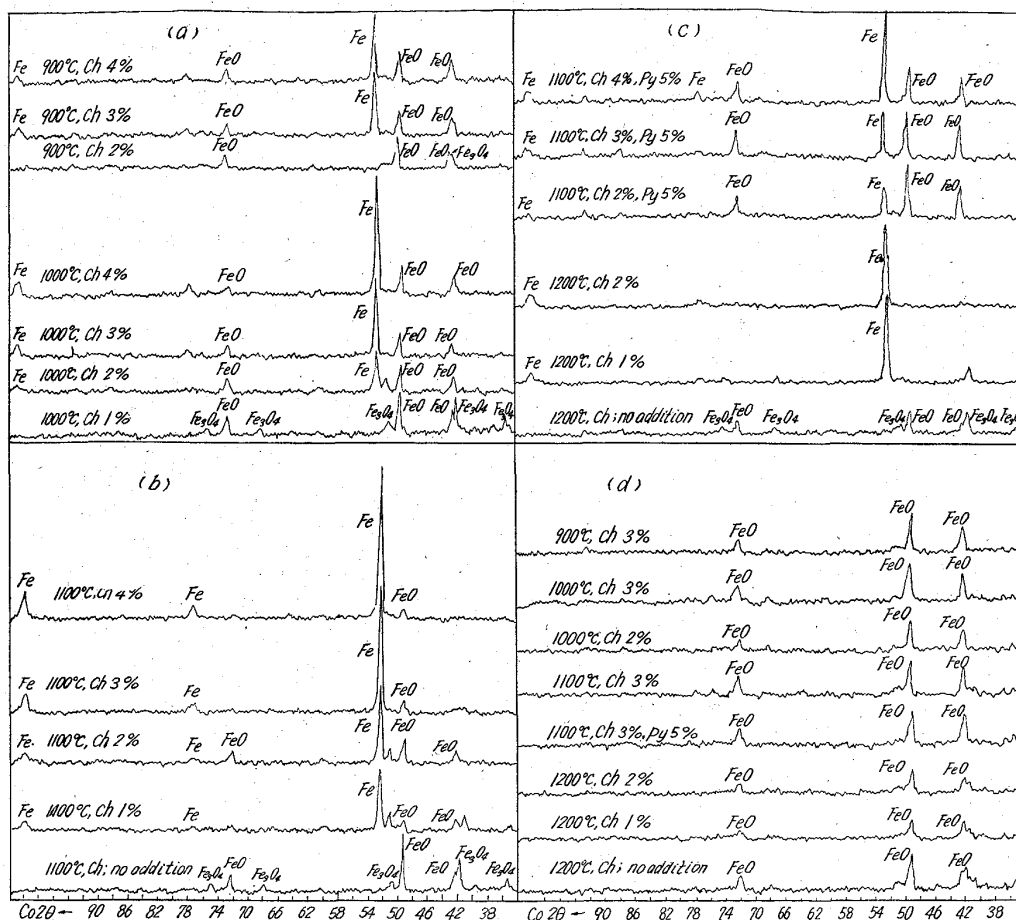 (a)
Fe 900℃, Ch 4% FeO Fe FeO FeO
Fe 900℃, Ch 3% FeO Fe FeO FeO
900℃, Ch 2% FeO FeO FeO, Fe₃O₄
Fe 1000℃, Ch 4% FeO Fe FeO FeO
Fe 1000℃, Ch 3% FeO FeO FeO
Fe 1000℃, Ch 2% FeO Fe FeO FeO
1000℃, Ch 1% Fe₃O₄ FeO Fe₃O₄ Fe₃O₄ FeO FeO Fe₃O₄ Fe₃O₄
(b)
Fe 1100℃, Ch 4% Fe Fe FeO
Fe 1100℃, Ch 3% Fe Fe FeO
Fe 1100℃, Ch 2% Fe FeO Fe FeO FeO
Fe 1100℃, Ch 1% Fe Fe FeO FeO
1100℃, Ch; no addition Fe₃O₄ FeO Fe₃O₄ Fe₃O₄ FeO FeO Fe₃O₄ Fe₃O₄
Co2θ ← 90 86 82 78 74 70 66 62 58 54 50 46 42 38
(c)
Fe 1100℃, Ch 4%, Py 5% Fe FeO Fe FeO FeO
Fe 1100℃, Ch 3%, Py 5% FeO Fe FeO FeO
Fe 1100℃, Ch 2%, Py 5% FeO Fe FeO FeO
Fe 1200℃, Ch 2% Fe
Fe 1200℃, Ch 1% Fe
1200℃, Ch; no addition Fe₃O₄ FeO Fe₃O₄ Fe₃O₄ FeO FeO Fe₃O₄ Fe₃O₄
(d)
900℃, Ch 3% FeO FeO FeO
1000℃, Ch 3% FeO FeO FeO
1000℃, Ch 2% FeO FeO FeO
1100℃, Ch 3% FeO FeO FeO
1100℃, Ch 3%, Py 5% FeO FeO FeO
1200℃, Ch 2% FeO FeO FeO
1200℃, Ch 1% FeO FeO FeO
1200℃, Ch; no addition FeO FeO FeO
Co2θ ← 90 86 82 78 74 70 66 62 58 54 50 46 42 38